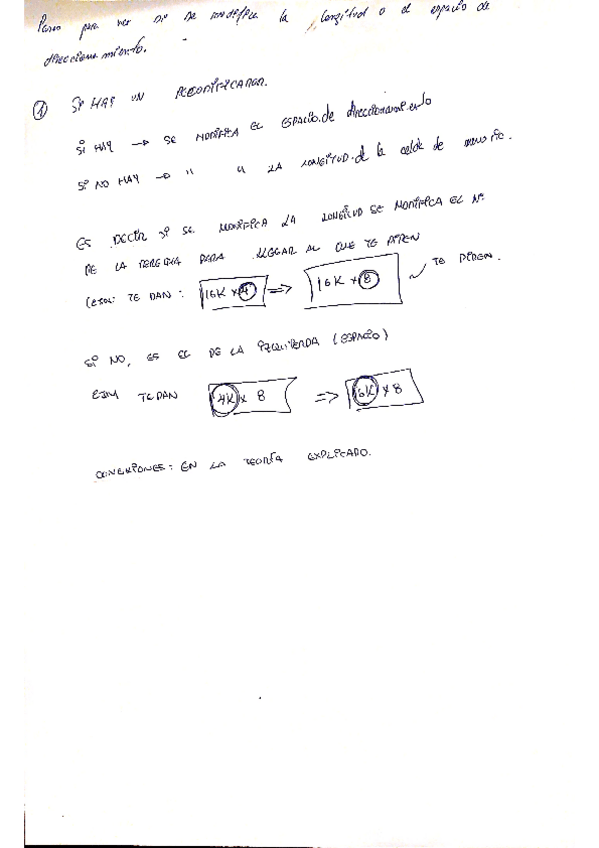 Pasos para ver si se modifica la longitud o el espacio de
direccionamiento.
① Si HAY UN DECODIFICADOR.
Si HAY → SE MODIFICA EL ESPACIO de direccionamiento
Si NO HAY → " " LA LONGITUD de la celda de memoria.
ES DECIR Si SE MODIFICA LA LONGITUD SE MODIFICA EL Nº
DE LA DERECHA PARA LLEGAR AL QUE TE PIDEN
TE DAN: 16K x 4 => 16K x 8 TE PIDEN.
Si NO, ES EL DE LA IZQUIERDA (ESPACIO)
EJM TE DAN 4K x 8 => 16K x 8
CONEXIONES: EN LA TEORÍA EXPLICADO.